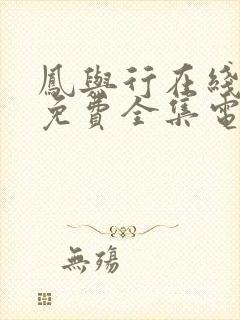 鳳與行在綫
免費全集電
無殤